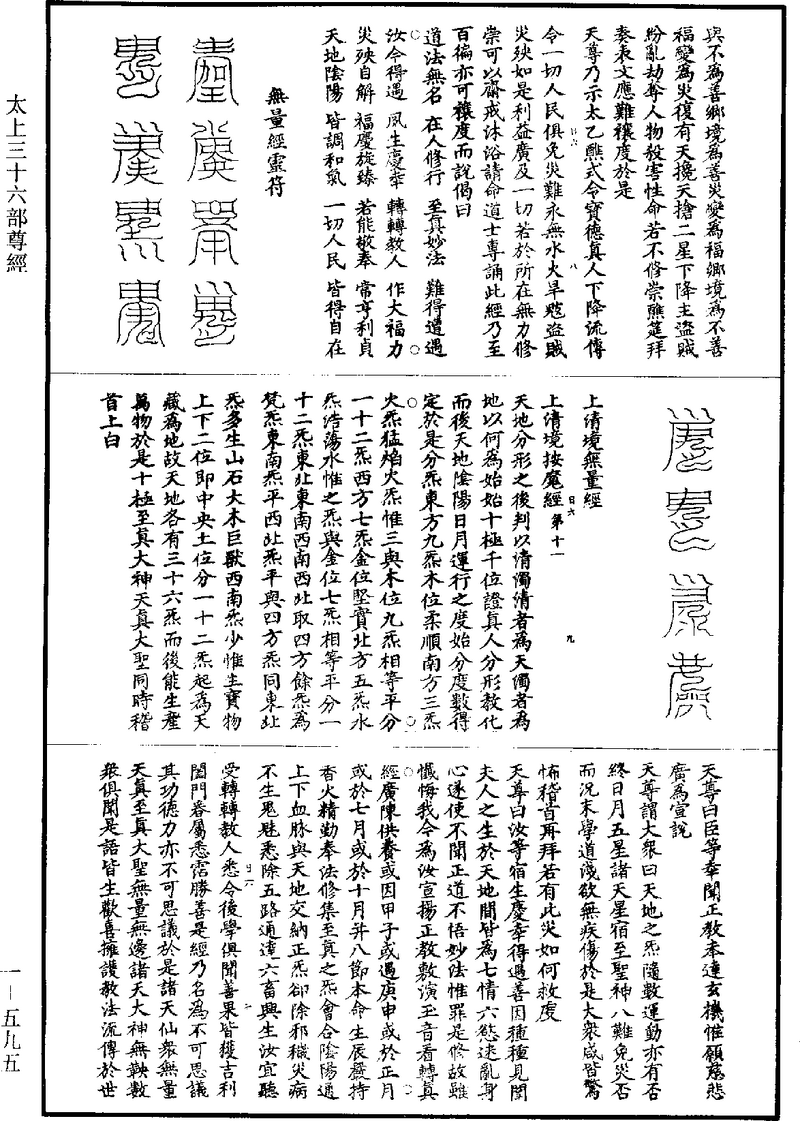 太上三十六部尊經
一—五九五
與不為善鄉境為善災變為福鄉境為不善
福變為災復有天攙天搶二星下降主盜賊
紛亂劫奪人物殺害性命若不修崇醮筵拜
奏表文應難禳度於是
天尊乃示太乙醮式令寶德真人下降流傳
令一切人民俱免災難永無水火旱蝗盜賊
災殃如是利益廣及一切若於所在無力修
崇可以齋戒沐浴請命道士專誦此經乃至
百徧亦可禳度而說偈曰
道法無名 在人修行 至真妙法 難得遭遇
汝今得遇 夙生慶幸 轉轉教人 作大福力
災殃自解 福慶旋臻 若能敬奉 常亨利貞
天地陰陽 皆調和氣 一切人民 皆得自在
無量經靈符
上清境無量經
上清境按魔經 日六 第十一
天地分形之後判以清濁清者為天濁者為
地以何為始始十極千位證真人分形教化
而後天地陰陽日月運行之度始分度數得
定於是分炁東方九炁木位柔順南方三炁
火炁猛焰火炁惟三與木位九炁相等平分
一十二炁西方七炁金位堅實北方五炁水
炁浩蕩水惟之炁與金位七炁相等平分一
十二炁東北東南西南西北取四方餘炁為
梵炁東南炁平西北炁平與四方炁同東北
炁多生山石大木巨獸西南炁少惟生寶物
上下二位即中央土位分一十二炁起為天
藏為地故天地各有三十六炁而後能生產
萬物於是十極至真大神天真大聖同時稽
首上白
天尊曰臣等幸聞正教未達玄機惟願慈悲
廣為宣說
天尊謂大眾曰天地之炁隨數運動亦有否
終日月五星諸天星宿至聖神八難免災否
而況末學道淺欲無疾傷於是大眾咸皆驚
怖稽首再拜若有此災如何救度
天尊曰汝等宿生慶幸得遇善因種種見聞
夫人之生於天地間皆為七情六慾迷亂身
心遂使不聞正道不悟妙法惟罪是修故雖
懺悔我今為汝宣揚正教敷演玉音看轉真
經廣陳供養或因甲子或遇庚申或於正月
或於七月或於十月并八節本命生辰嚴持
香火精勤奉法修集至真之炁會合陰陽通
上下血脉與天地交納正炁卻除邪穢災病
不生鬼魅悉除五路通達六畜興生汝宜聽
受轉轉教人悉令後學俱聞善果皆獲吉利
閤門眷屬悉霑勝善是經乃名為不可思議
其功德力亦不可思議於是諸天仙眾無量
天真至真大聖無量無邊諸天大神無鞅數
眾俱聞是語皆生歡喜擁護教法流傳於世